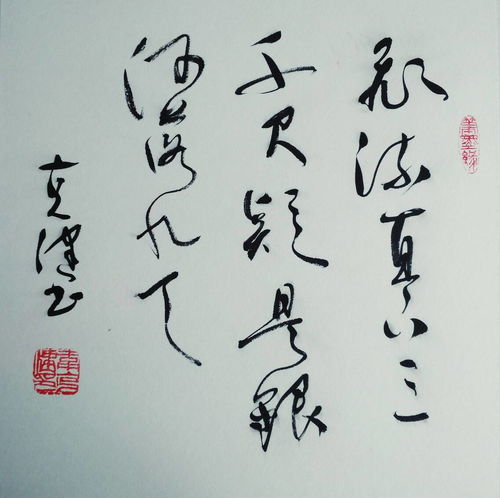 飞流直下三
千尺疑是银
河落九天
克津书